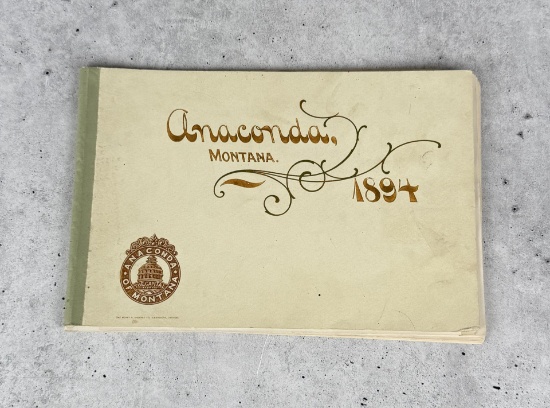 Anaconda,
MONTANA.
1894
ANACONDA
OF MONTANA